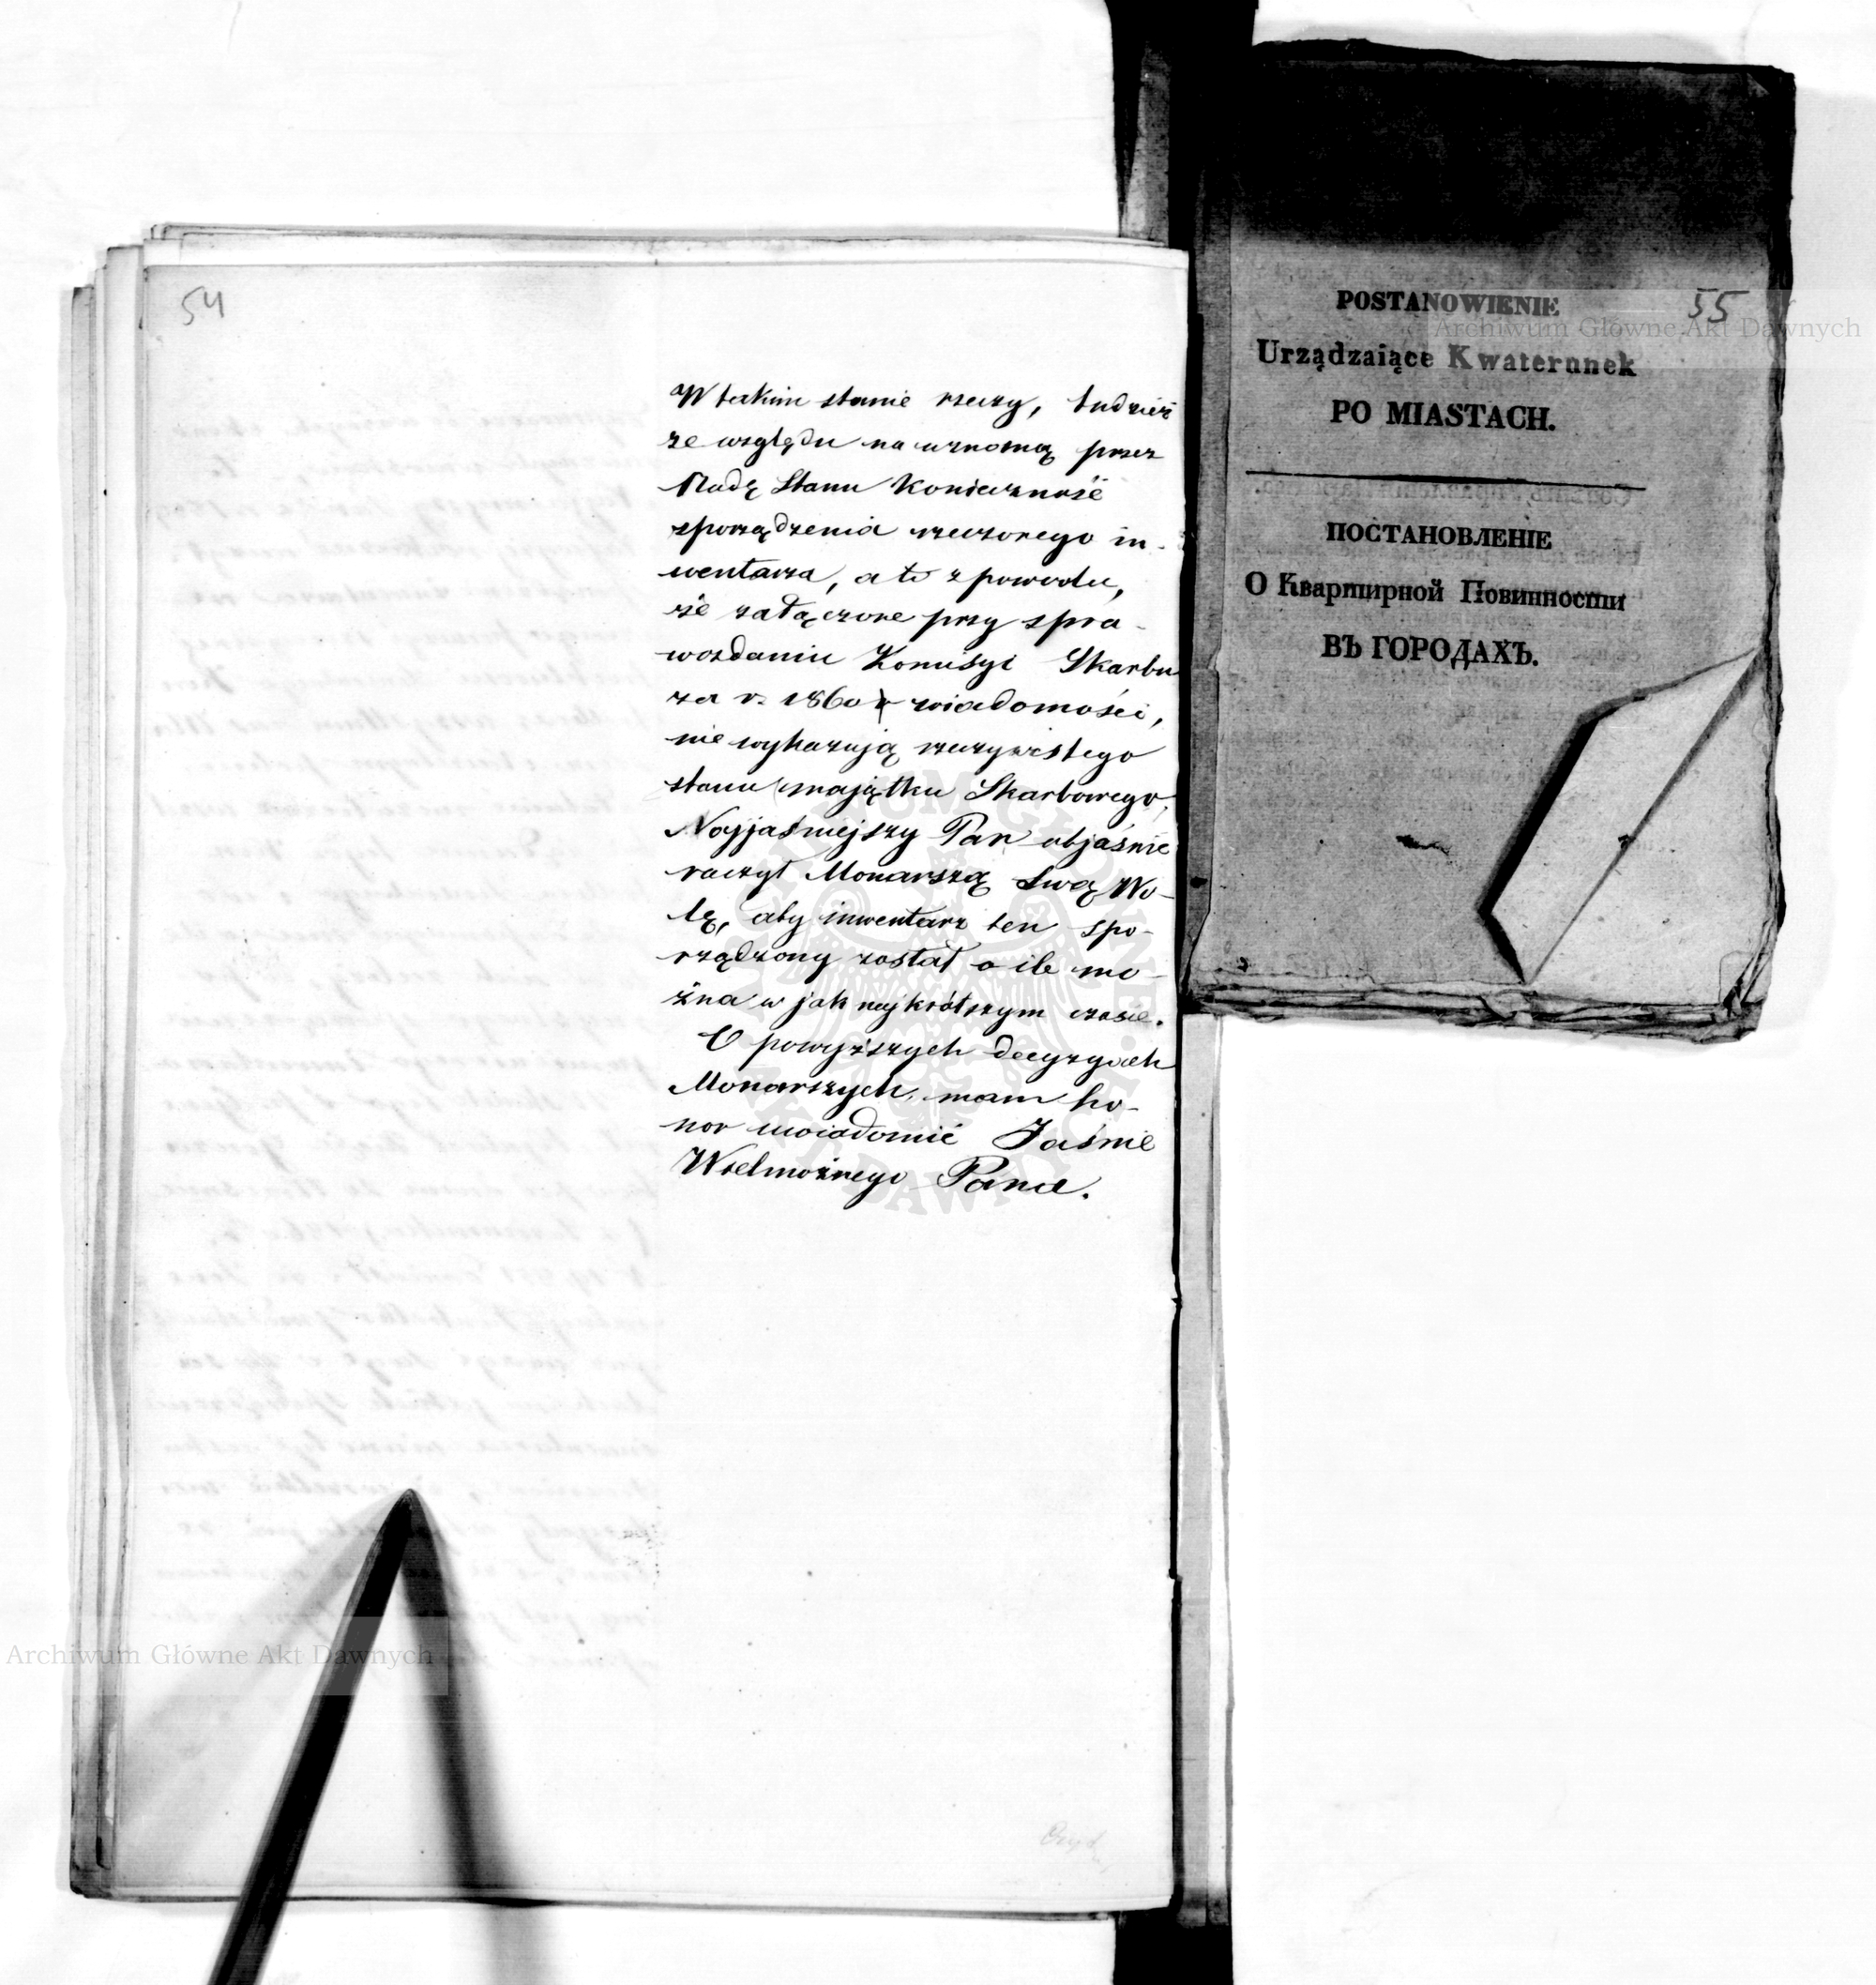 54
W takim stanie rzeczy, tudzież
ze względu na uznaną przez
Radę Stanu Konieczność
sporządzenia rzeczonego in-
wentarza, a to z powodu,
że załączone przy spra-
wozdaniu Komisyi Skarbu
za r. 1860 wiadomości,
nie wykazują rzeczywistego
stanu majątku Skarbowego,
Najjaśniejszy Pan objaśnić
raczył Monarszą swą Wo-
lę, aby inwentarz ten spo-
rządzony został o ile mo-
żna w jak najkrótszym czasie.
O powyższych decyzyach
Monarszych, mam ho-
nor uwiadomić Jaśnie
Wielmożnego Pana.
55
POSTANOWIENIE
Urządzaiące Kwaterunek
PO MIASTACH.
ПОСТАНОВЛЕНІЕ
О Квартирной Повинности
ВЪ ГОРОДАХЪ.
Archiwum Główne Akt Dawnych
Archiwum Główne Akt Dawnych